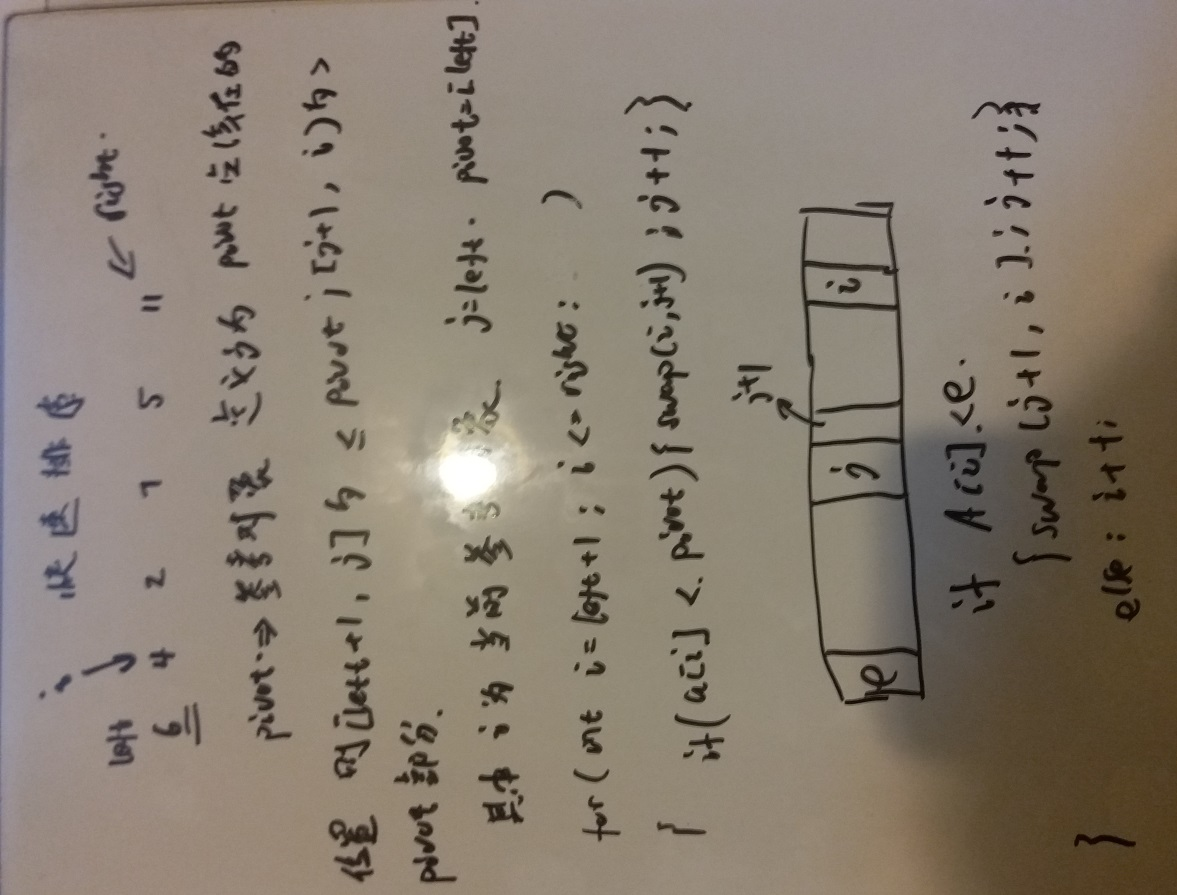 快速排序
i
left → right.
6 4 2 7 5 11
pivot ⇒ 参考对象 定义j为 pivot 应该在的
位置 则[left+1, j]为 ≤ pivot; [j+1, i)为 >
pivot 部分.
其中 i为 当前 参考 j=left. pivot=[left].
for( int i=left+1; i<=right: )
{ if(a[i] < pivot){ swap(i,j+1); j++;}
j+1
e j i
if A[i].<e.
{ swap[j+1, i]. j++;}
else: i++;
}